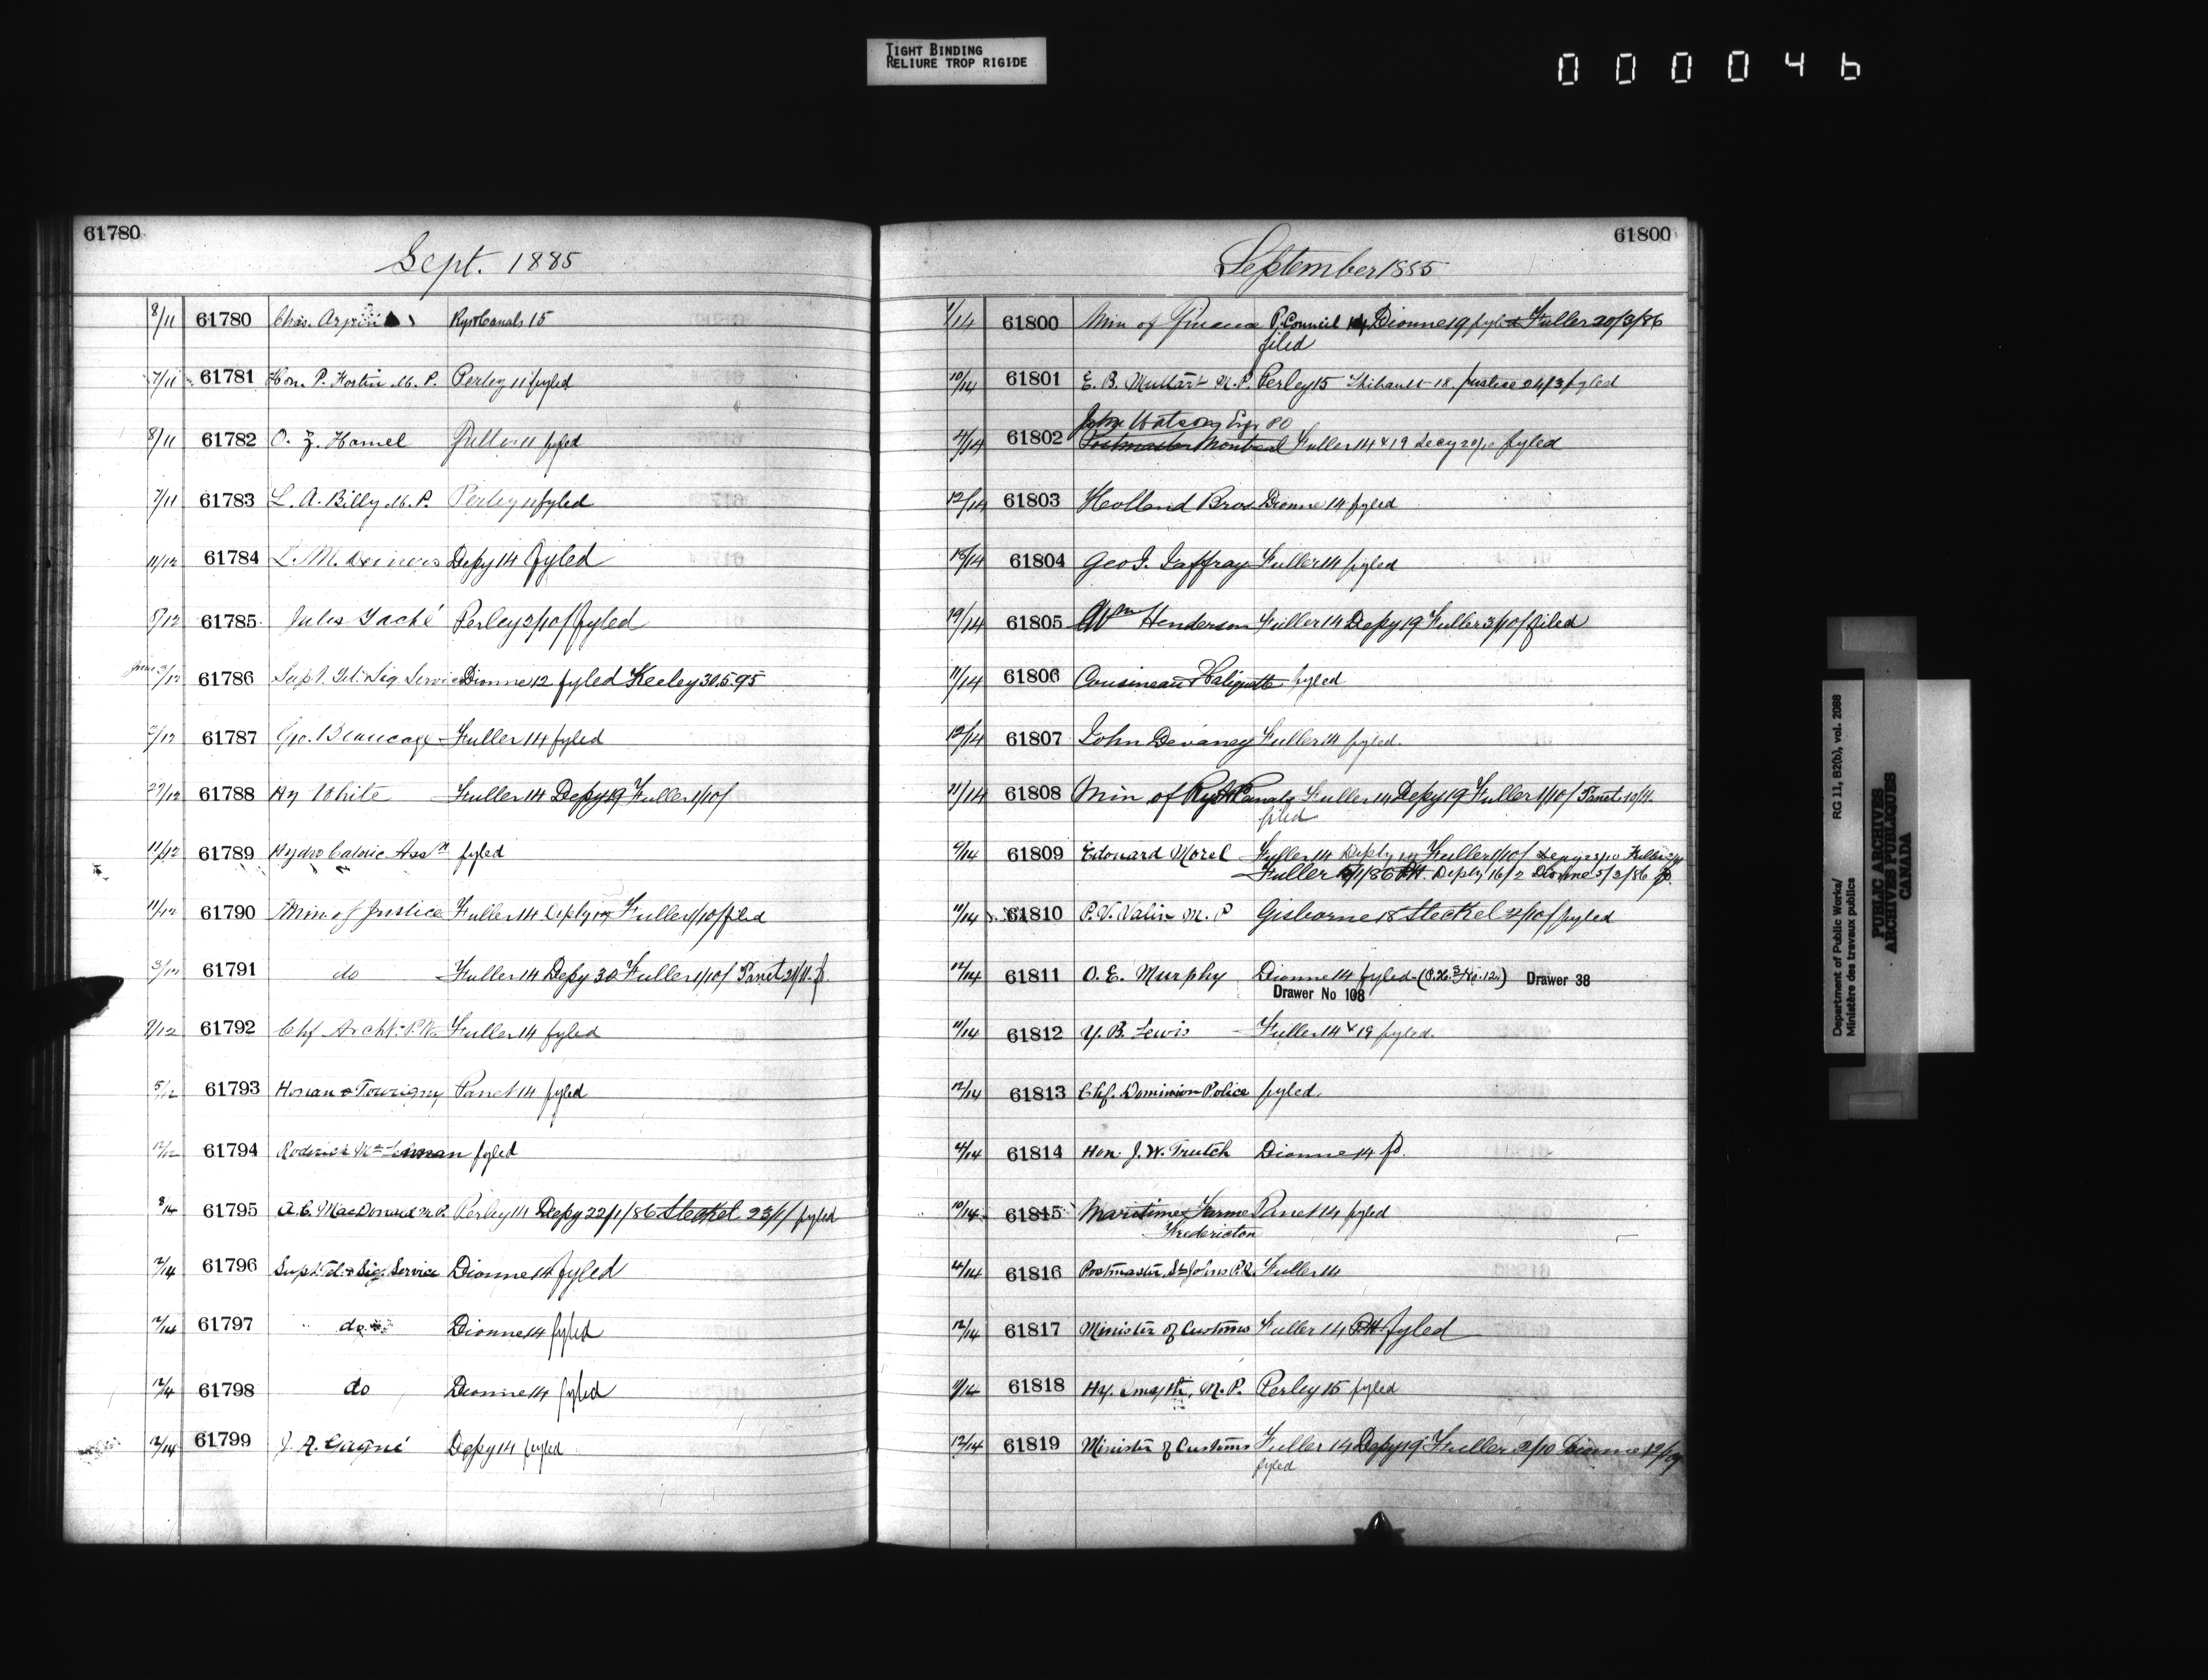 TIGHT BINDING
RELIURE TROP RIGIDE
000046
61780
Sept. 1885
8/11 61780 Chas. Arpin Rys & Canals 15
7/11 61781 Hon. P. Fortin M.P. Perley 11 fyled
8/11 61782 O. Z. Hamel Fuller 11 fyled
7/11 61783 L. A. Billy M.P. Perley 11 fyled
11/12 61784 L. M. Depy 14 fyled
8/12 61785 Jules Taché Perley 2/10/ fyled
61786 Supt. Tel. & Sig. Service Dionne 12 fyled Keeley 30.5.95
61787 Geo. Beaucage Fuller 14 fyled
61788 Hy White Fuller 14 Depy 19 Fuller 1/10/
11/12 61789 Hydro Caloric Assn fyled
11/12 61790 Min of Justice Fuller 14 Deply 19 Fuller 1/10/ filed
61791 do Fuller 14 Depy 30 Fuller 1/10/ Panet f.
61792 Chf Archt. P.W. Fuller 14 fyled
5/12 61793 Honan & Tourigny Panet 14 fyled
12/12 61794 Roderick McLennan fyled
8/14 61795 A. C. MacDonald M.P. Perley 14 Depy 22/1/86 Steckel 23/1/ fyled
12/14 61796 Supt. Tel. & Sig. Service Dionne 14 fyled
12/14 61797 do Dionne 14 fyled
12/14 61798 do Dionne 14 fyled
12/14 61799 J. A. Gagné Depy 14 fyled
61800
September 1885
61800 Min of Finance P. Council 14 Dionne 19 fyled Fuller 20/3/86
filed
10/14 61801 E. B. Muttart M.P. Perley 15 Thibault 18. Justice 24/3 fyled
John Watson Esqr PO
61802 Postmaster Montreal Fuller 14 & 19 Decy 20/10 fyled
12/14 61803 Holland Bros. Dionne 14 fyled
61804 Geo. J. Jaffray Fuller 14 fyled
61805 Wm Henderson Fuller 14 Depy 19 Fuller 3/10/ filed
11/14 61806 Cousineau & Haliquette fyled
12/14 61807 John Devaney Fuller 14 fyled.
11/14 61808 Min of Rys & Canals Fuller 14 Depy 19 Fuller 1/10/ Panet
filed
61809 Edouard Morel Fuller 14 Deply 19 Fuller 1/10/ Depy 23/10 Fuller
Fuller 5/1/86 PH. Deply 16/2 Dionne 5/3/86 fd.
11/14 61810 P. V. Valin M.P Gisborne 18 Steckel 2/10/ fyled
12/14 61811 O. E. Murphy Dionne 14 fyled Drawer 38
Drawer No 108
11/14 61812 Y. B. Lewis Fuller 14 & 19 fyled.
12/14 61813 Chf. Dominion Police fyled.
61814 Hon. J. W. Trutch Dionne 14 fd.
10/14 61815 Maritime Farmer Panet 14 fyled
Fredericton
61816 Postmaster, St Johns P.Q. Fuller 14
12/14 61817 Minister of Customs Fuller 14 PH fyled
11/14 61818 Hy. Smyth, M.P. Perley 15 fyled
12/14 61819 Minister of Customs Fuller 14 Depy 19 Fuller 2/10 Dionne
fyled
Department of Public Works/ RG 11, B2(b), vol. 2088
Ministère des travaux publics
PUBLIC ARCHIVES
ARCHIVES PUBLIQUES
CANADA